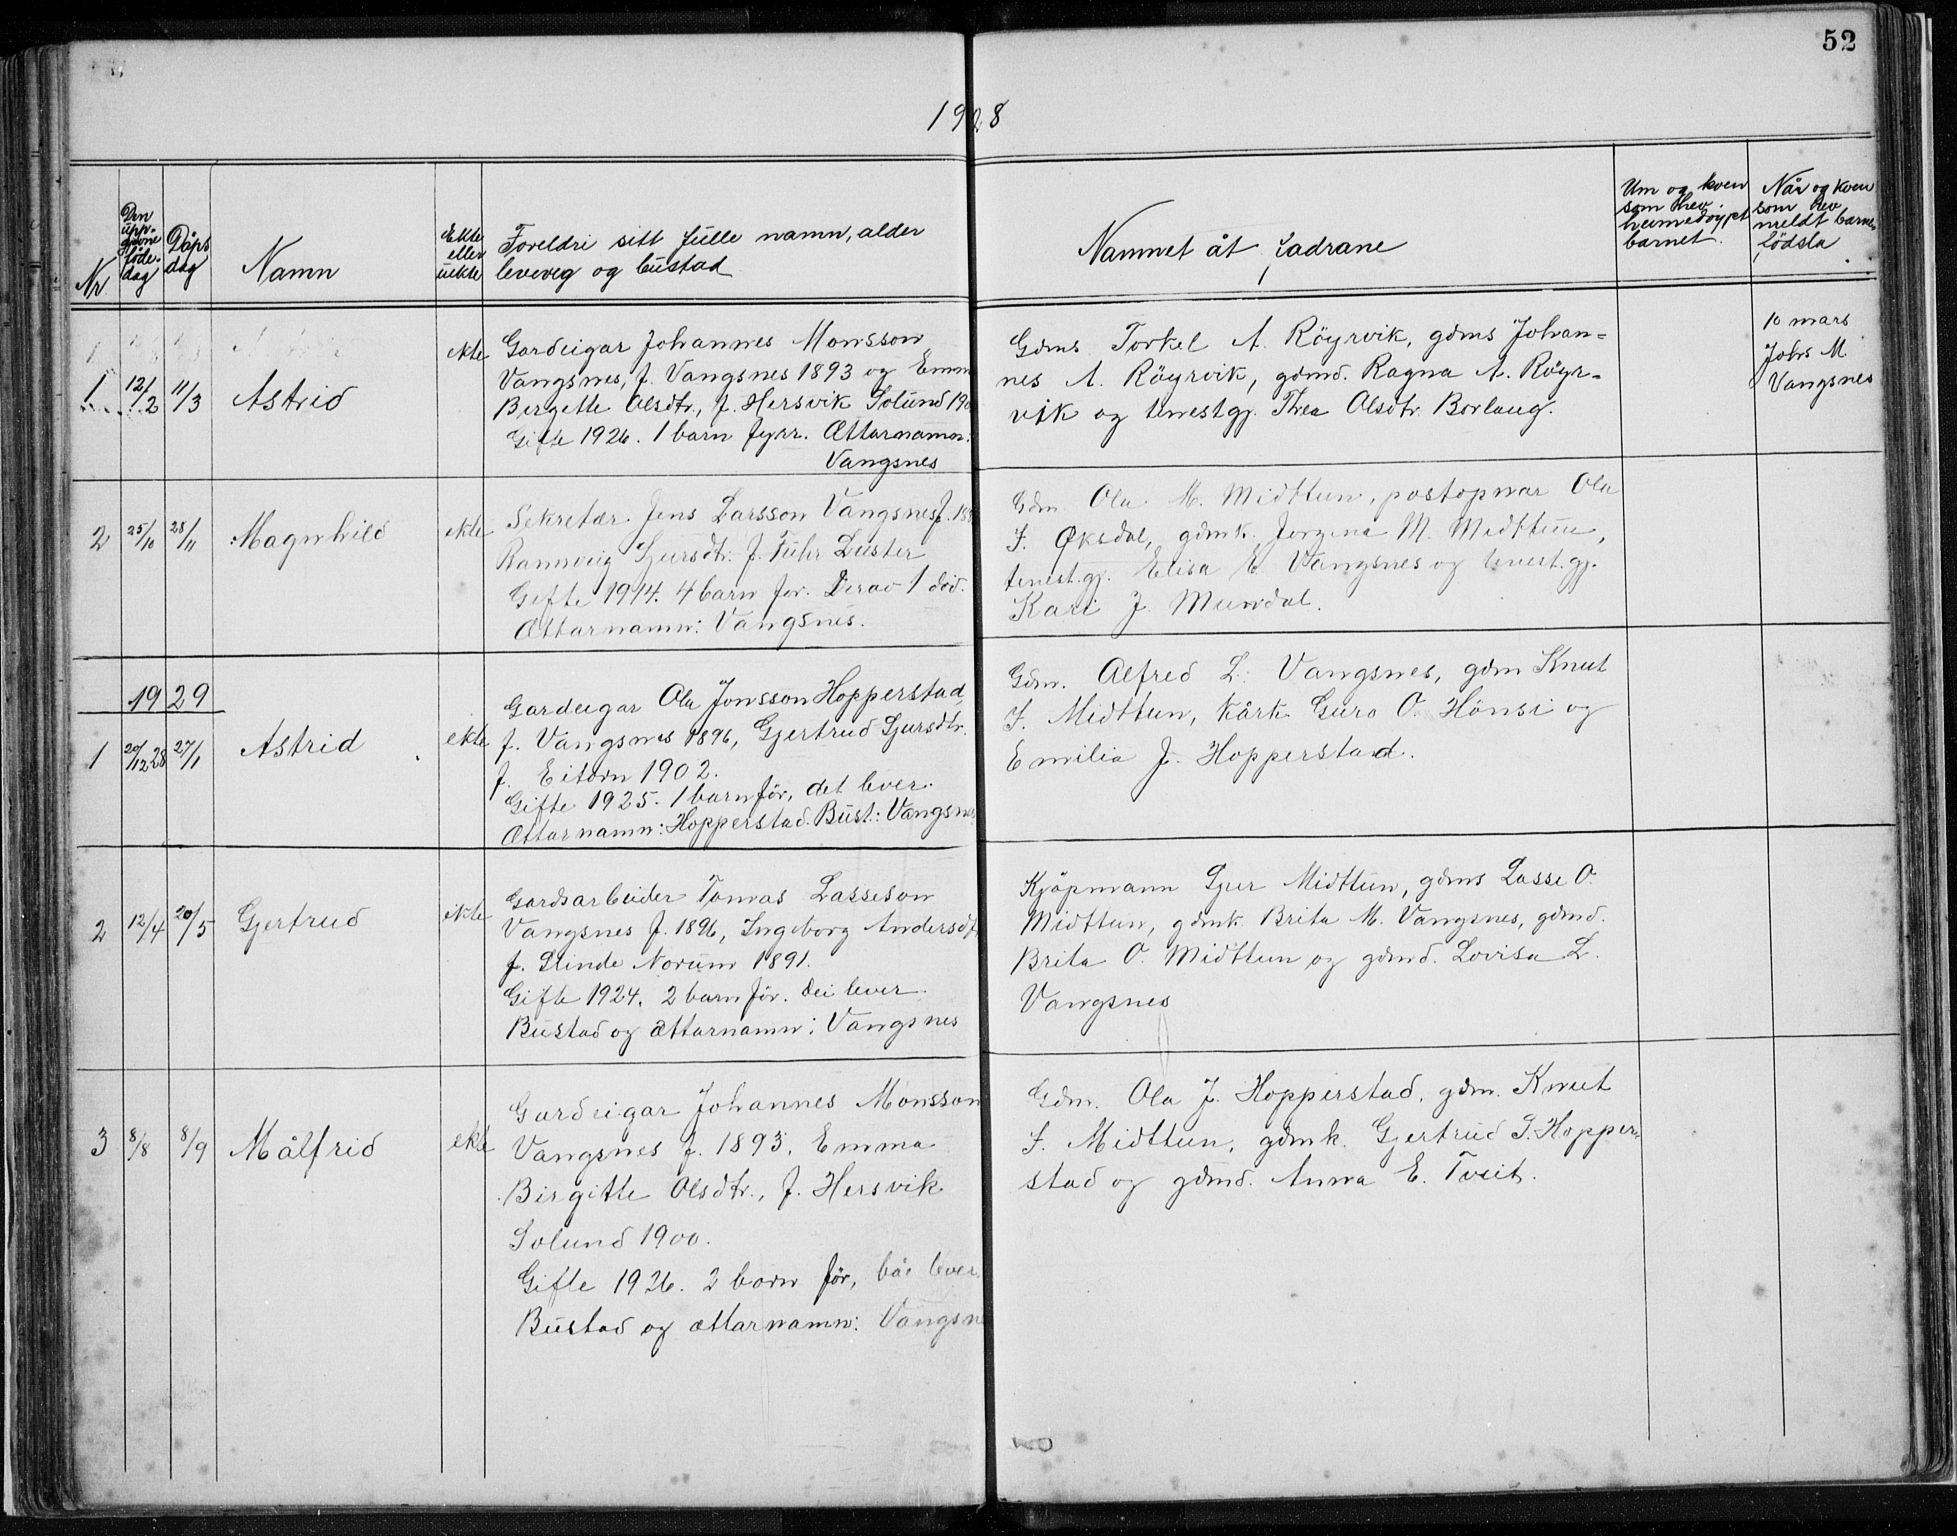 52
1928
Nr
Den
upp-
gjevne
föde-
dag
Dåps
dag
Namn
Ekte
eller
uekte
Foreldri sitt fulle namn, alder
leveveg og bustad
Namnet åt fadrane
Um og kven
som hev
heimedöypt
barnet.
Når og kven
som hev
meldt barne-
födsla.
1
12/2
11/3
Astrid
ekte
Gardeigar Johannes Monsson
Vangsnes, f. Vangsnes 1893 og Emma
Birgitte Olsdtr., f. Hersvik Solund 190
Gifte 1926. 1 barn fyrr. Ættarnamn:
Vangsnes
Gdms Torkel A. Röyrvik, gdms Johan=
nes A. Röyrvik, gdmd. Ragna A. Röyr=
vik og tenestgj. Thea Olsdtr. Borlaug.
10 mars
Johs M.
Vangsnes
2
25/10
28/11
Magnhild
ekte
Sekretær Jens Larsson Vangsnes f. 188
Rannveig Sjursdtr. f. Fuhr Luster
Gifte 1914. 4 barn för. Derav 1 död.
Ættarnamn: Vangsnes.
Gdm. Ola M. Midttun, postopnar Ola
J. Øksdal, gdmk. Jorgina M. Midttun,
tenest.gj. Elisa E. Vangsnes og tenest.gj.
Kari J. Mundal.
1929
1
20/12 28
27/1
Astrid
ekte
Gardeigar Ola Jonsson Hopperstad,
f. Vangsnes 1896, Gjertrud Sjursdtr.
f. Eitorn 1902.
Gifte 1925. 1 barn för, det lever.
Ættarnamn: Hopperstad. Bust.: Vangsnes
Gdm. Alfred L. Vangsnes, gdm Knut
J. Midttun, kårk Guro O. Hönsi og
Emilia J. Hopperstad.
2
12/4
20/5
Gjertrud
ekte
Gardsarbeider Tomas Lasseson
Vangsnes f. 1896, Ingeborg Andersdtr
f. Slinde Norum 1891.
Gifte 1924. 2 barn för. Dei lever.
Bustad og ættarnamn: Vangsnes
Kjöpmann Sjur Midttun, gdms Lasse O.
Midttun, gdmk. Brita M. Vangsnes, gdmd.
Brita O. Midttun og gdmd. Lovisa L.
Vangsnes
3
8/8
8/9
Målfrid
ekte
Gardeigar Johannes Monsson
Vangsnes f. 1893, Emma
Birgitte Olsdtr., f. Hersvik
Solund 1900.
Gifte 1926. 2 born för, båe lever.
Bustad og ættarnamn: Vangsn
Gdm. Ola J. Hopperstad, gdm. Knut
J. Midttun, gdmk. Gjertrud S. Hopper=
stad og gdmd. Anna E. Tveit.